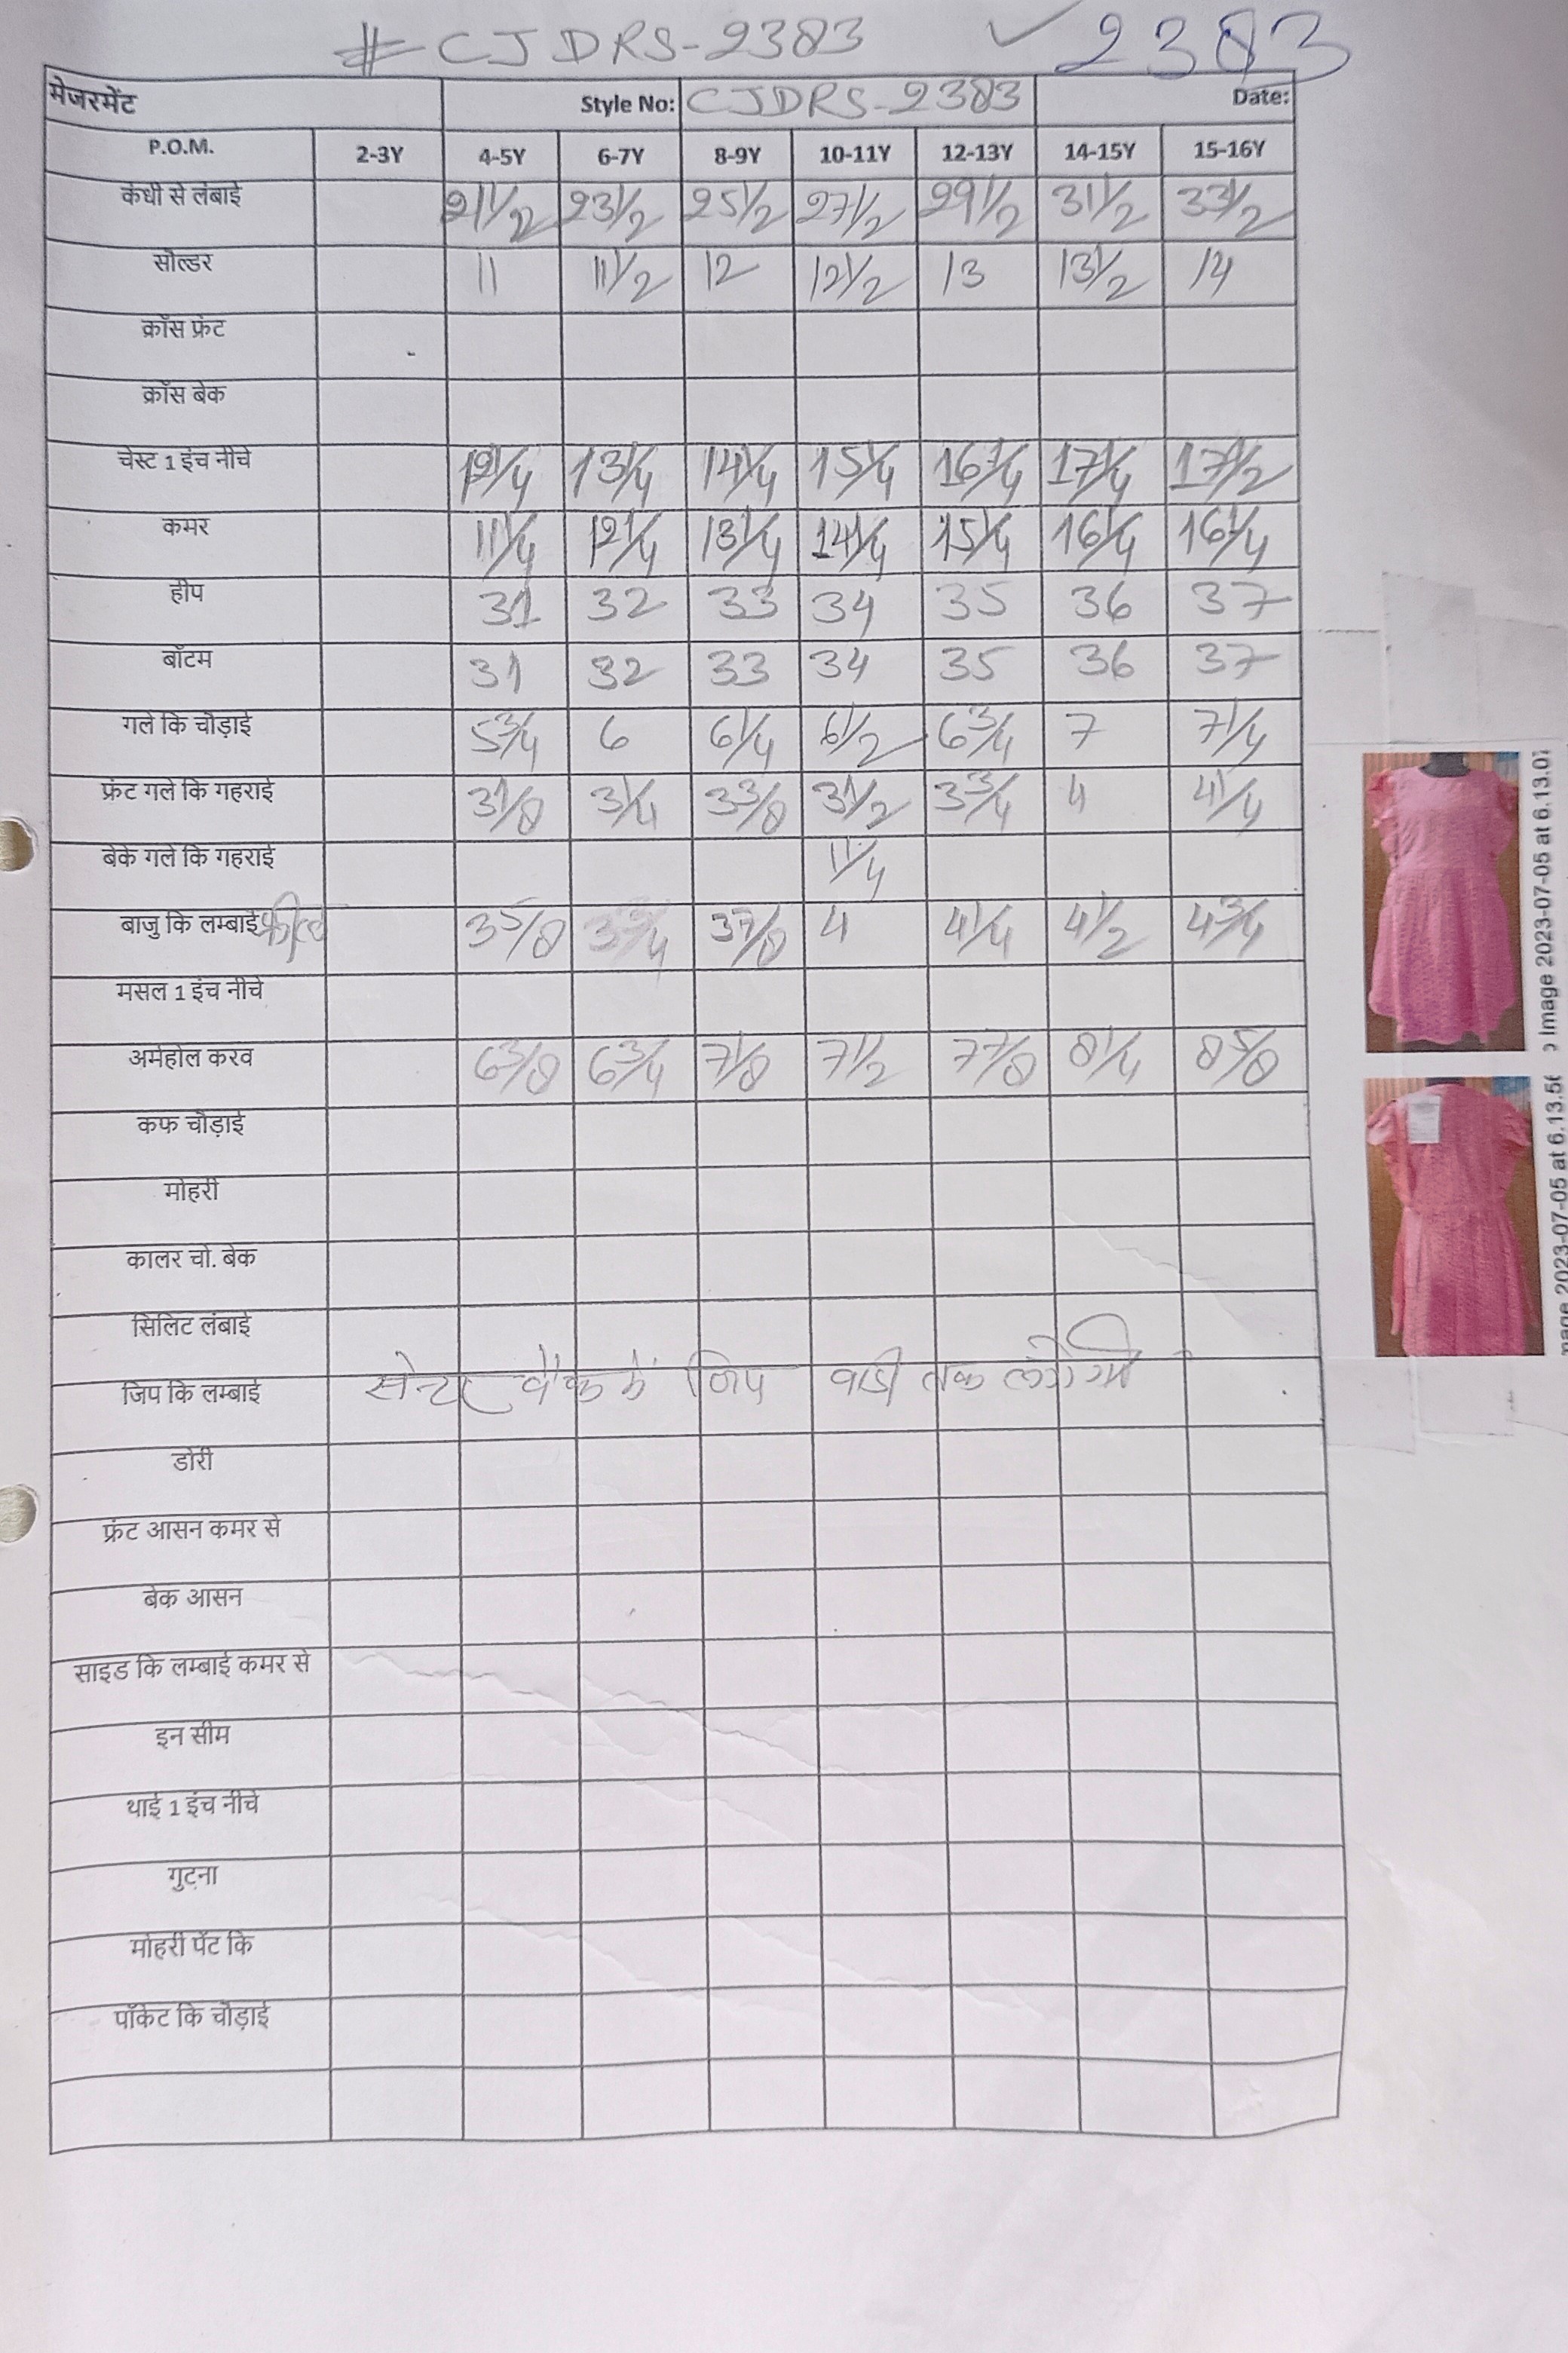 #CJDRS-2383 ✓ 2383
मेजरमेंट Style No: CJDRS-2383 Date:
P.O.M. 2-3Y 4-5Y 6-7Y 8-9Y 10-11Y 12-13Y 14-15Y 15-16Y
कंधी से लंबाई 21 1/2 23 1/2 25 1/2 27 1/2 29 1/2 31 1/2 33 1/2
सोल्डर 11 11 1/2 12 12 1/2 13 13 1/2 14
क्रॉस फ्रंट
क्रॉस बेक
चेस्ट 1 इंच नीचे 12 1/4 13 1/4 14 1/4 15 1/4 16 1/4 17 1/4 17 1/2
कमर 11 1/4 12 1/4 13 1/4 14 1/4 15 1/4 16 1/4 16 1/4
हीप 31 32 33 34 35 36 37
बॉटम 31 32 33 34 35 36 37
गले कि चौड़ाई 5 3/4 6 6 1/4 6 1/2 6 3/4 7 7 1/4
फ्रंट गले कि गहराई 3 1/8 3 1/4 3 3/8 3 1/2 3 3/4 4 4 1/4
बेके गले कि गहराई 1 1/4
बाजु कि लम्बाई 3 5/8 3 3/4 3 7/8 4 4 1/4 4 1/2 4 3/4
मसल 1 इंच नीचे
अर्महोल करव 6 3/8 6 3/4 7 1/8 7 1/2 7 7/8 8 1/4 8 5/8
कफ चौड़ाई
मोहरी
कालर चो. बेक
सिलिट लंबाई
जिप कि लम्बाई सेन्टर बैक में जिप बाडी तक लगेगी
डोरी
फ्रंट आसन कमर से
बेक आसन
साइड कि लम्बाई कमर से
इन सीम
थाई 1 इंच नीचे
गुटना
मोहरी पेंट कि
पॉकेट कि चौड़ाई
Image 2023-07-05 at 6.13.07
2023-07-05 at 6.13.56